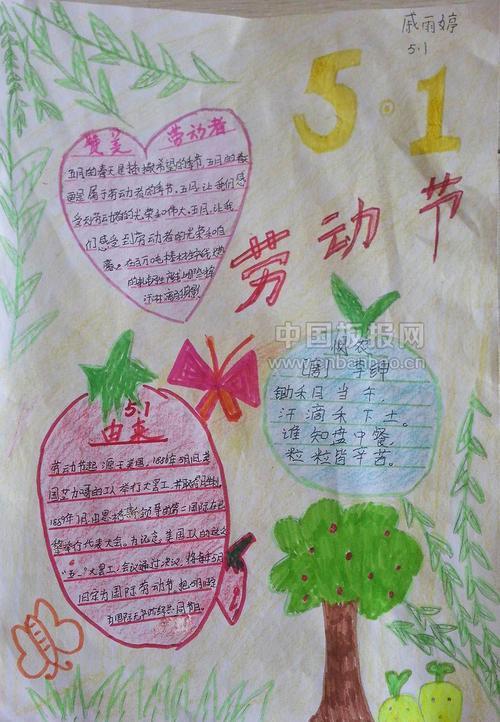 戚雨婷
5.1
5.1
劳动节
赞美 劳动者
五月的春天是播撒希望的季节,五月的春
更是属于劳动者的季节,五月,让我们感
受到劳动者的光荣和伟大,五月,让我
们感受到劳动者的光荣和
中国板报网
www.cnbanbao.cn
悯农
[唐] 李绅
锄禾日当午,
汗滴禾下土。
谁知盘中餐,
粒粒皆辛苦。
5.1
由来
劳动节起源于美国,1886年5月1日,美
国芝加哥的工人举行大罢工,并取得胜利,
1889年7月,由恩格斯领导的第二国际在巴
黎举行代表大会。为纪念,美国工人的这次
"五一"大罢工,会议通过决议,将每年5月
1日定为国际劳动节,